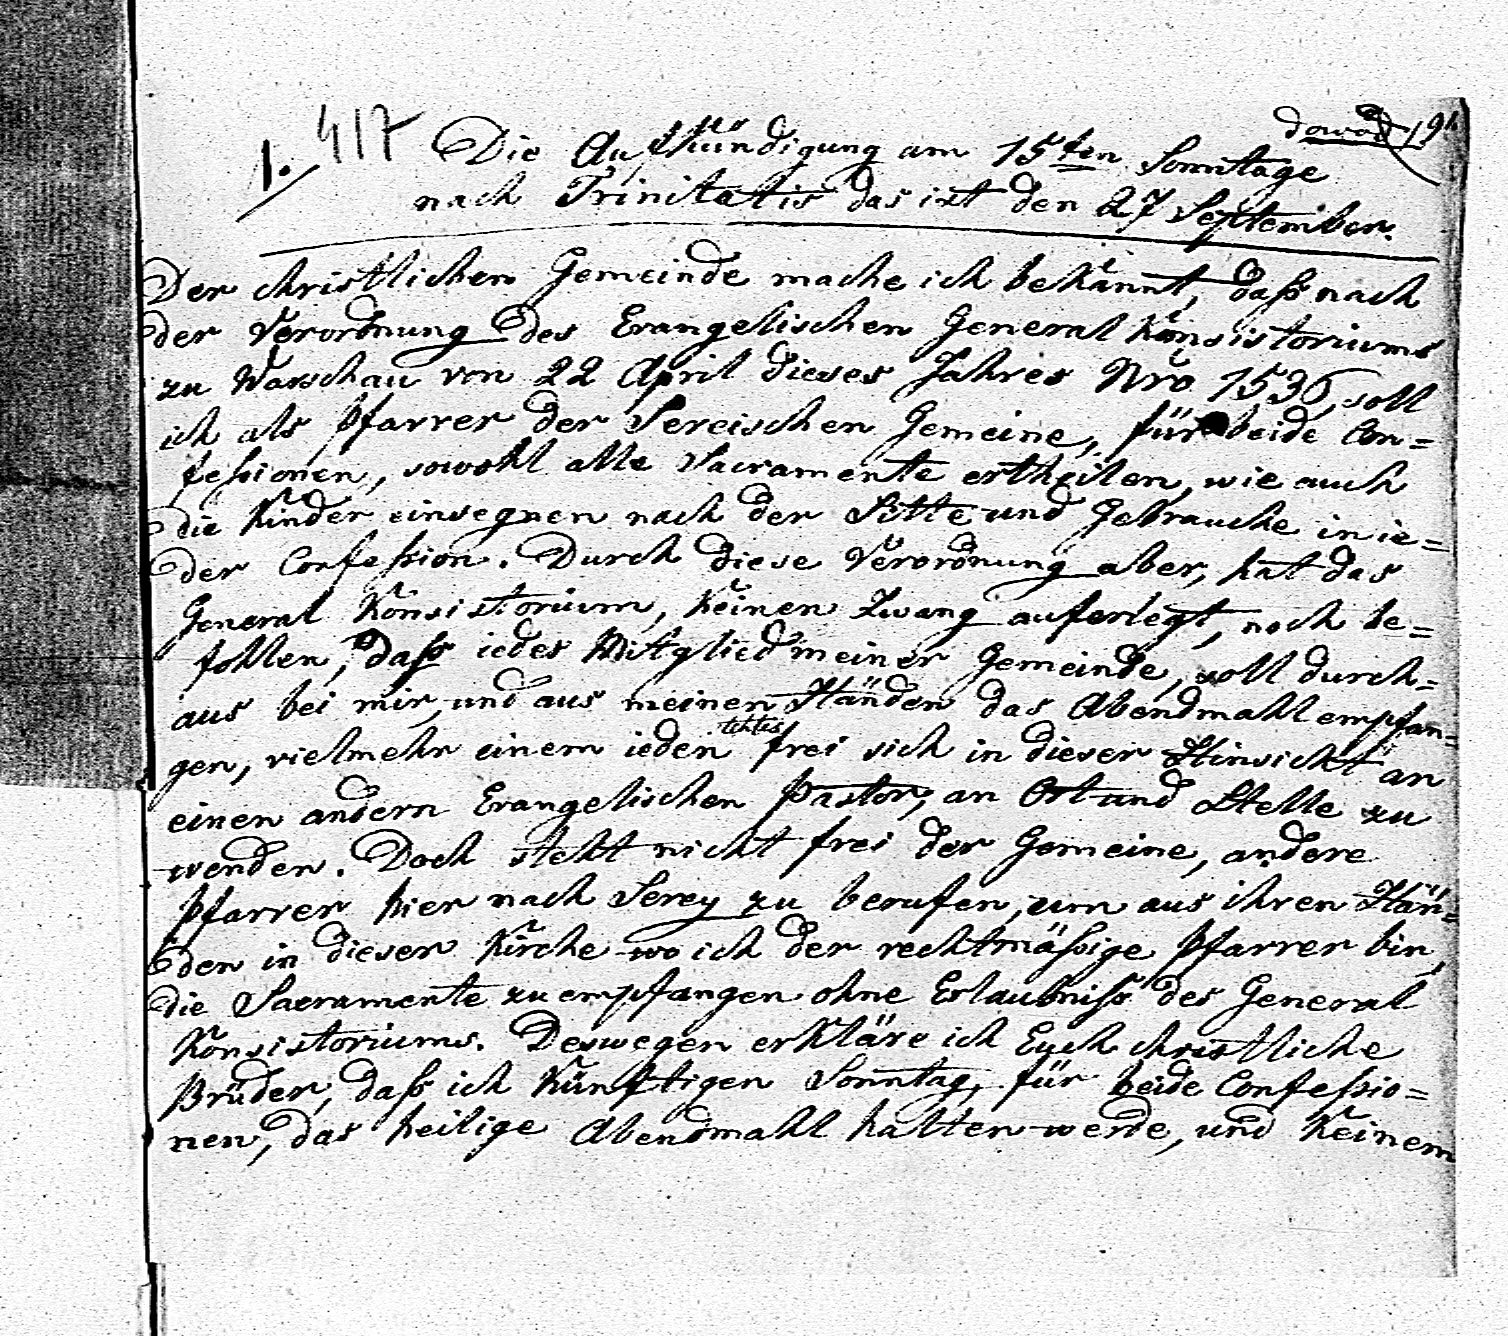 1. 417
dowód 19.
Die Aufkündigung am 15ten Sonntage
nach Trinitatis das ixt den 27 September.
Der christlichen Gemeinde mache ich bekannt, daß nach
der Verordnung des Evangelischen General Konsistoriums
zu Warschau von 22 April dieses Jahres Nro 1536, soll
ich als Pfarrer der Sereischen Gemeine, für beide Con=
feßionen, sowohl alle Sacramente ertheilen, wie auch
die Kinder einsegnen nach der Sitte und Gebrauche in ie=
der Confeßion. Durch diese Verordnung aber, hat das
General Konsistorium, Keinen Zwang auferlegt, noch be=
fohlen, daß iedes Mitglied meiner Gemeinde, soll durch=
aus bei mir, und aus meinen Händen das Abendmahl empfan=
gen, vielmehr einem ieden stehts frei sich in dieser Hinsicht an
einen andern Evangelischen Pastor, an Ort und Stelle zu
wenden. Doch steht nicht frei der Gemeine, andere
Pfarrer hier nach Serey zu berufen, um aus ihren Hän=
den in dieser Kirche wo ich der rechtmäßige Pfarrer bin,
die Sacramente zu empfangen ohne Erlaubniß des General
Konsistoriums. Deswegen erkläre ich Euch christliche
Brüder, daß ich Künftigen Sonntag, für beide Confeßio=
nen, das heilige Abendmahl halten werde, und Keinem